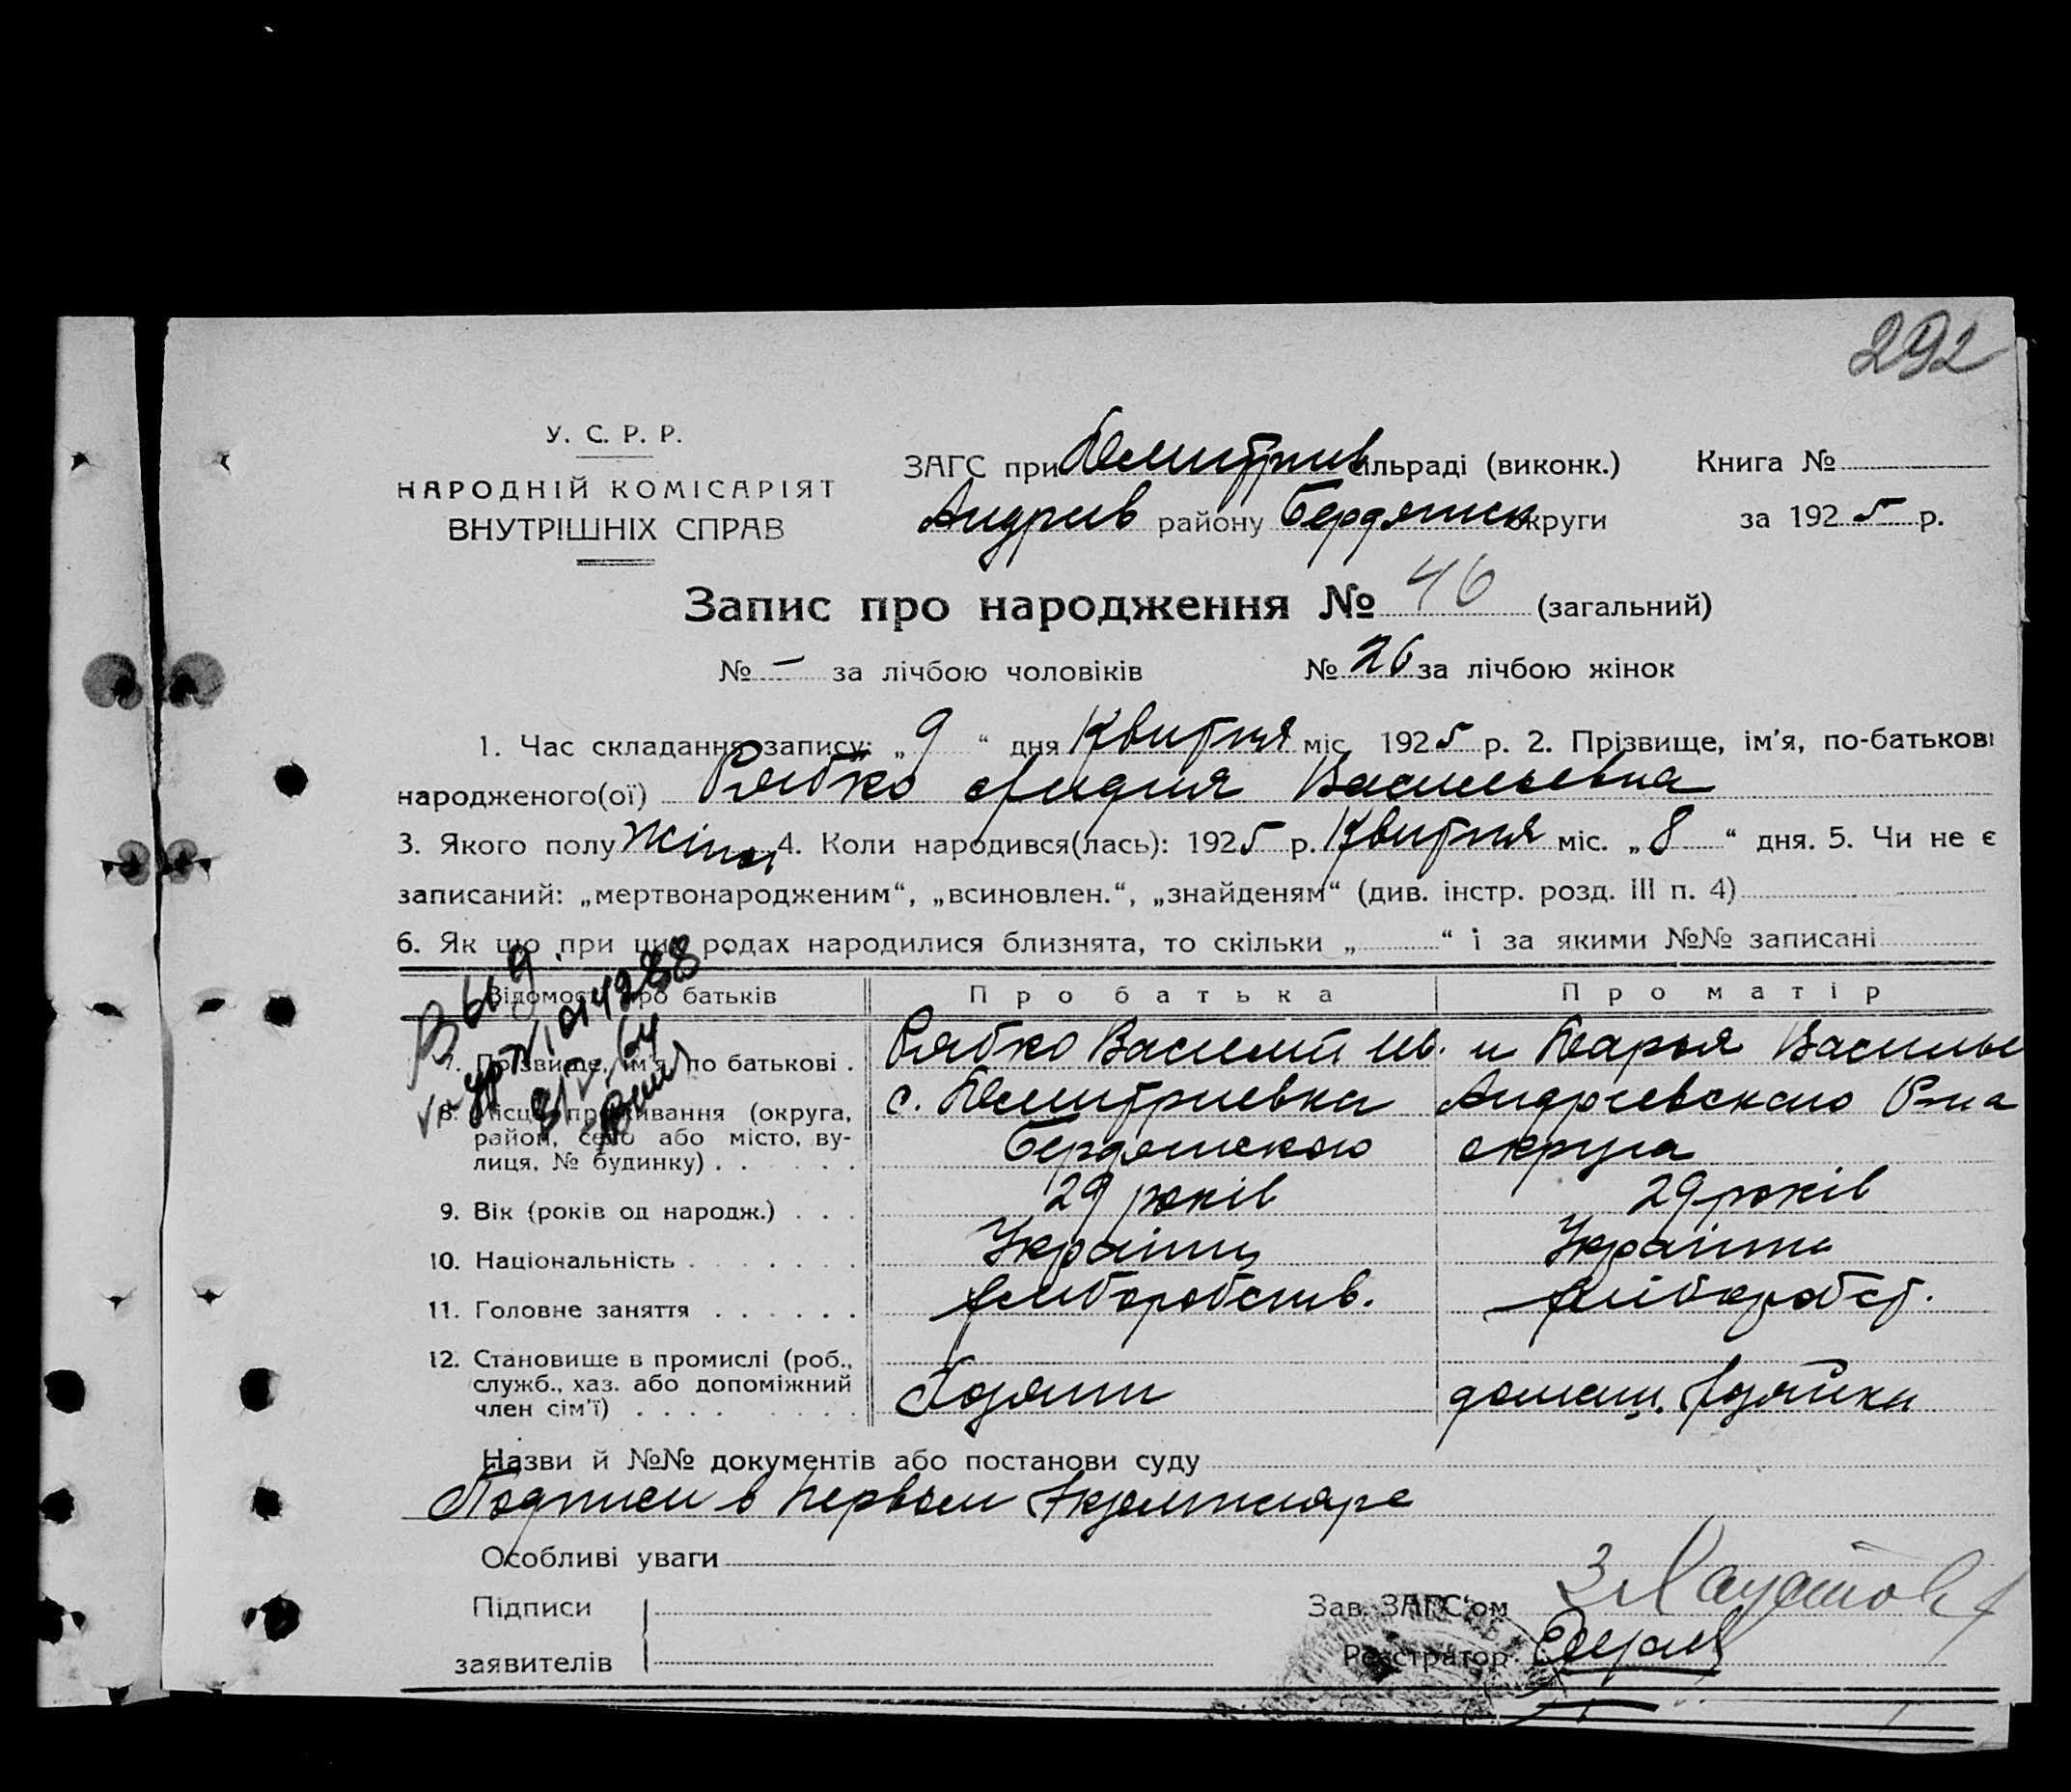 292
У. С. Р. Р.
НАРОДНІЙ КОМІСАРІЯТ
ВНУТРІШНІХ СПРАВ
ЗАГС при Дмитрив сільраді (виконк.) Книга №
Андрив району Бердянск округи за 1925 р.
Запис про народження № 46 (загальний)
№ – за лічбою чоловіків № 26 за лічбою жінок
1. Час складання запису: „9“ дня Квитня міс. 1925 р. 2. Прізвище, ім'я, по-батькові
народженого(ої) Рябко Лидия Васильевна
3. Якого полу жіноч 4. Коли народився(лась): 1925 р. Квитня міс. „8“ дня. 5. Чи не є
записаний: „мертвонародженим“, „всиновлен.“, „знайденям“ (див. інстр. розд. III п. 4)
6. Як що при цих родах народилися близнята, то скільки „ “ і за якими №№ записані
Відомості про батьків Про батька Про матір
7. Прізвище, ім'я, по батькові . Рябко Василий Ив. и Марья Василье
8. Місце проживання (округа, с. Дмитриевка Андреевского Р-на
район, село або місто, ву-
лиця, № будинку) . . . Бердянского округа
9. Вік (років од народж.) . . . 29 років 29 років
10. Національність . . . Украінц Украінка
11. Головне заняття . . . хлиборобств. хлібороб
12. Становище в промислі (роб.,
служб., хаз. або допоміжний
член сім'ї) . . . Хозяин домаш. хозяйка
Выд.
014288
64
Назви й №№ документів або постанови суду
Подписи в первом экземпляре
Особливі уваги
Підписи
заявителів
Зав. ЗАГС'ом
Реєстратор